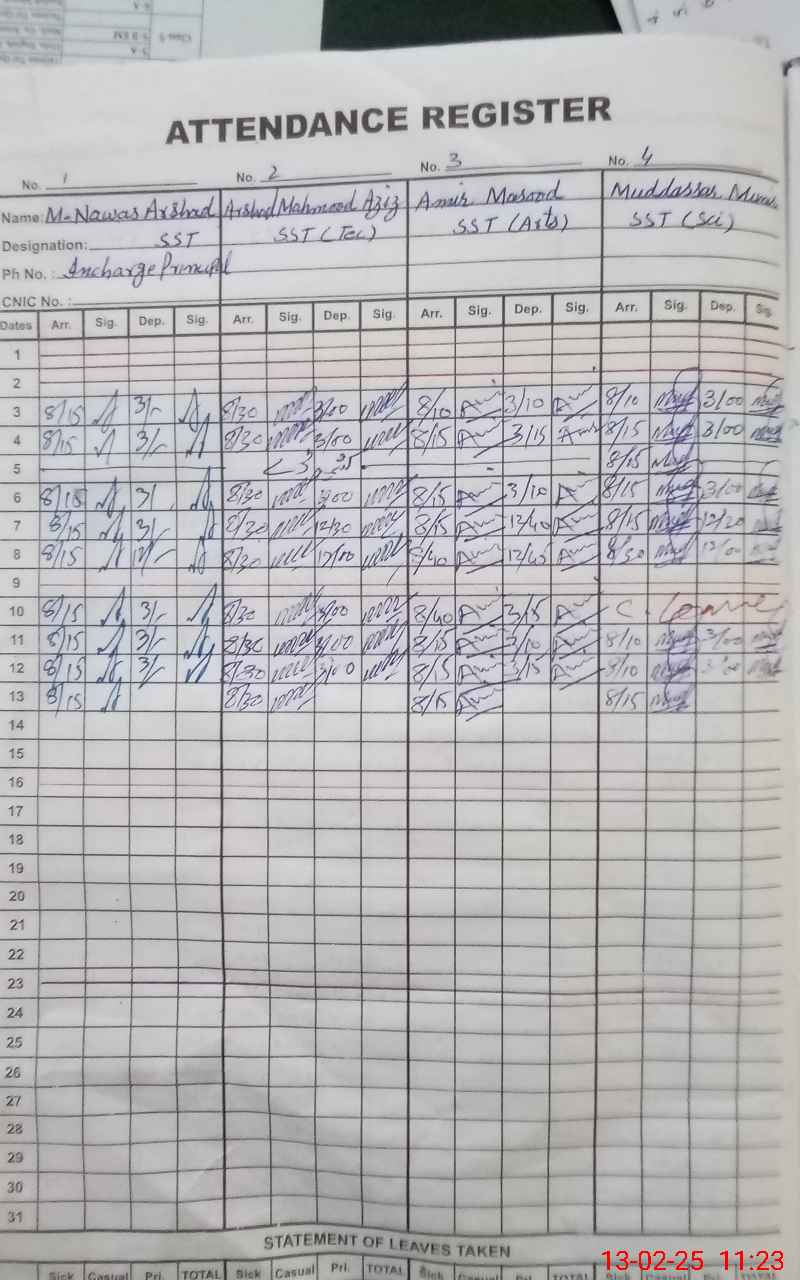 ATTENDANCE REGISTER
No. 1 No. 2 No. 3 No. 4
Name: M. Nawas Arshad Arshad Mahmood Aziz Amir Masood Muddassar
Designation: SST SST (Tec) SST (Arts) SST (Sci)
Ph No.: Incharge Principal
CNIC No. :
Dates Arr. Sig. Dep. Sig. Arr. Sig. Dep. Sig. Arr. Sig. Dep. Sig. Arr. Sig. Dep. Sig.
1
2
3 8/15 3/- 8/30 3/00 8/10 3/10 8/10 3/00
4 8/15 3/- 8/30 3/00 8/15 3/15 8/15 3/00
5 8/15
6 8/15 3/ 8/30 3/00 8/15 3/10 8/15 3/00
7 8/15 3/- 8/30 12/30 8/15 12/40 8/15 12/20
8 8/15 12/- 8/30 12/00 8/40 12/45 8/30 12/00
9
10 8/15 3/- 8/30 3/00 8/40 3/15 C. Leave
11 8/15 3/- 8/30 3/00 8/15 3/10 8/10 3/00
12 8/15 3/- 8/30 3/00 8/15 3/15 8/10 3/00
13 8/15 8/30 8/15 8/15
14
15
16
17
18
19
20
21
22
23
24
25
26
27
28
29
30
31
STATEMENT OF LEAVES TAKEN
Sick Casual Pri. TOTAL Sick Casual Pri. TOTAL Sick Casual Pri. TOTAL
13-02-25 11:23